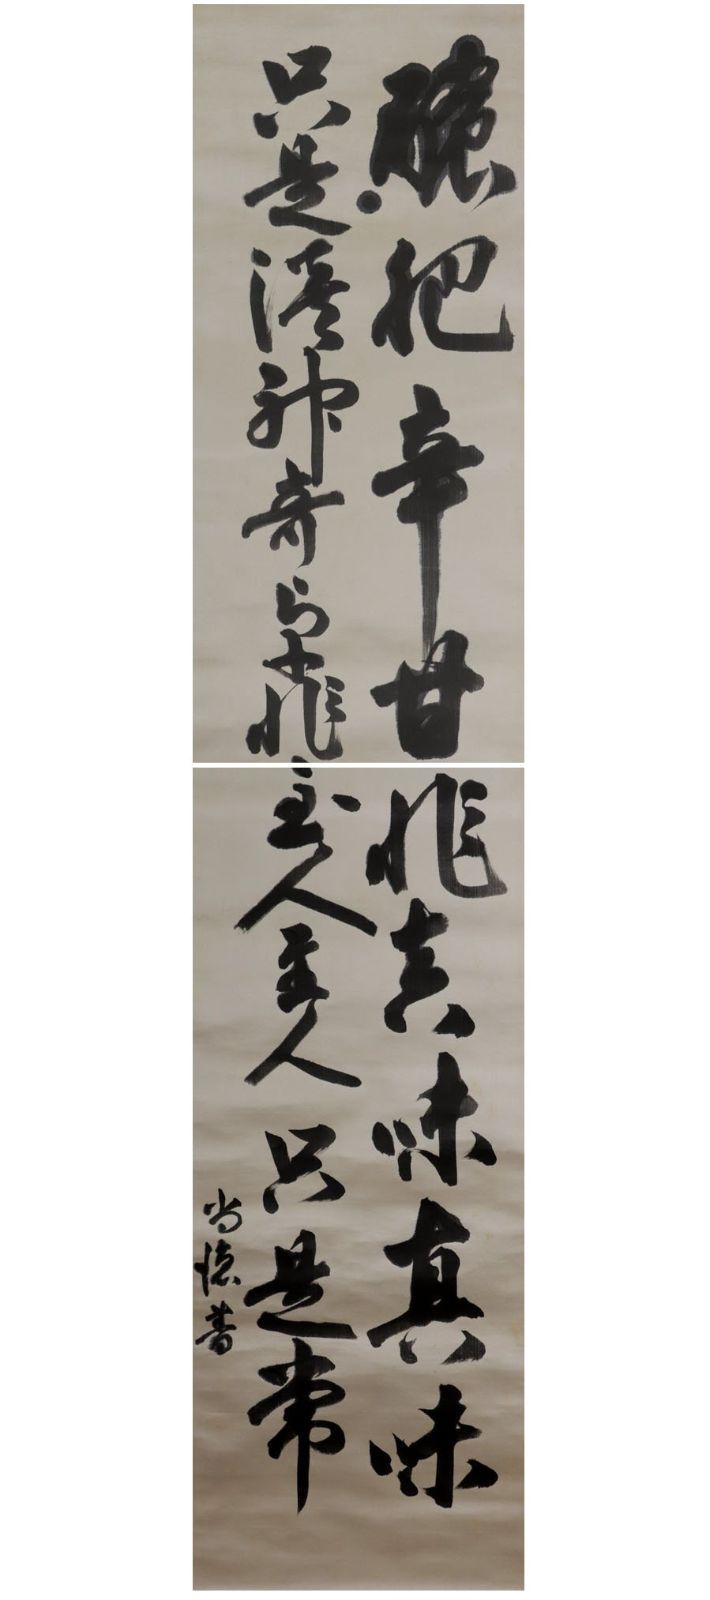 醲肥辛甘非真味真味
只是淡神奇卓非至人至人只是常
尚書